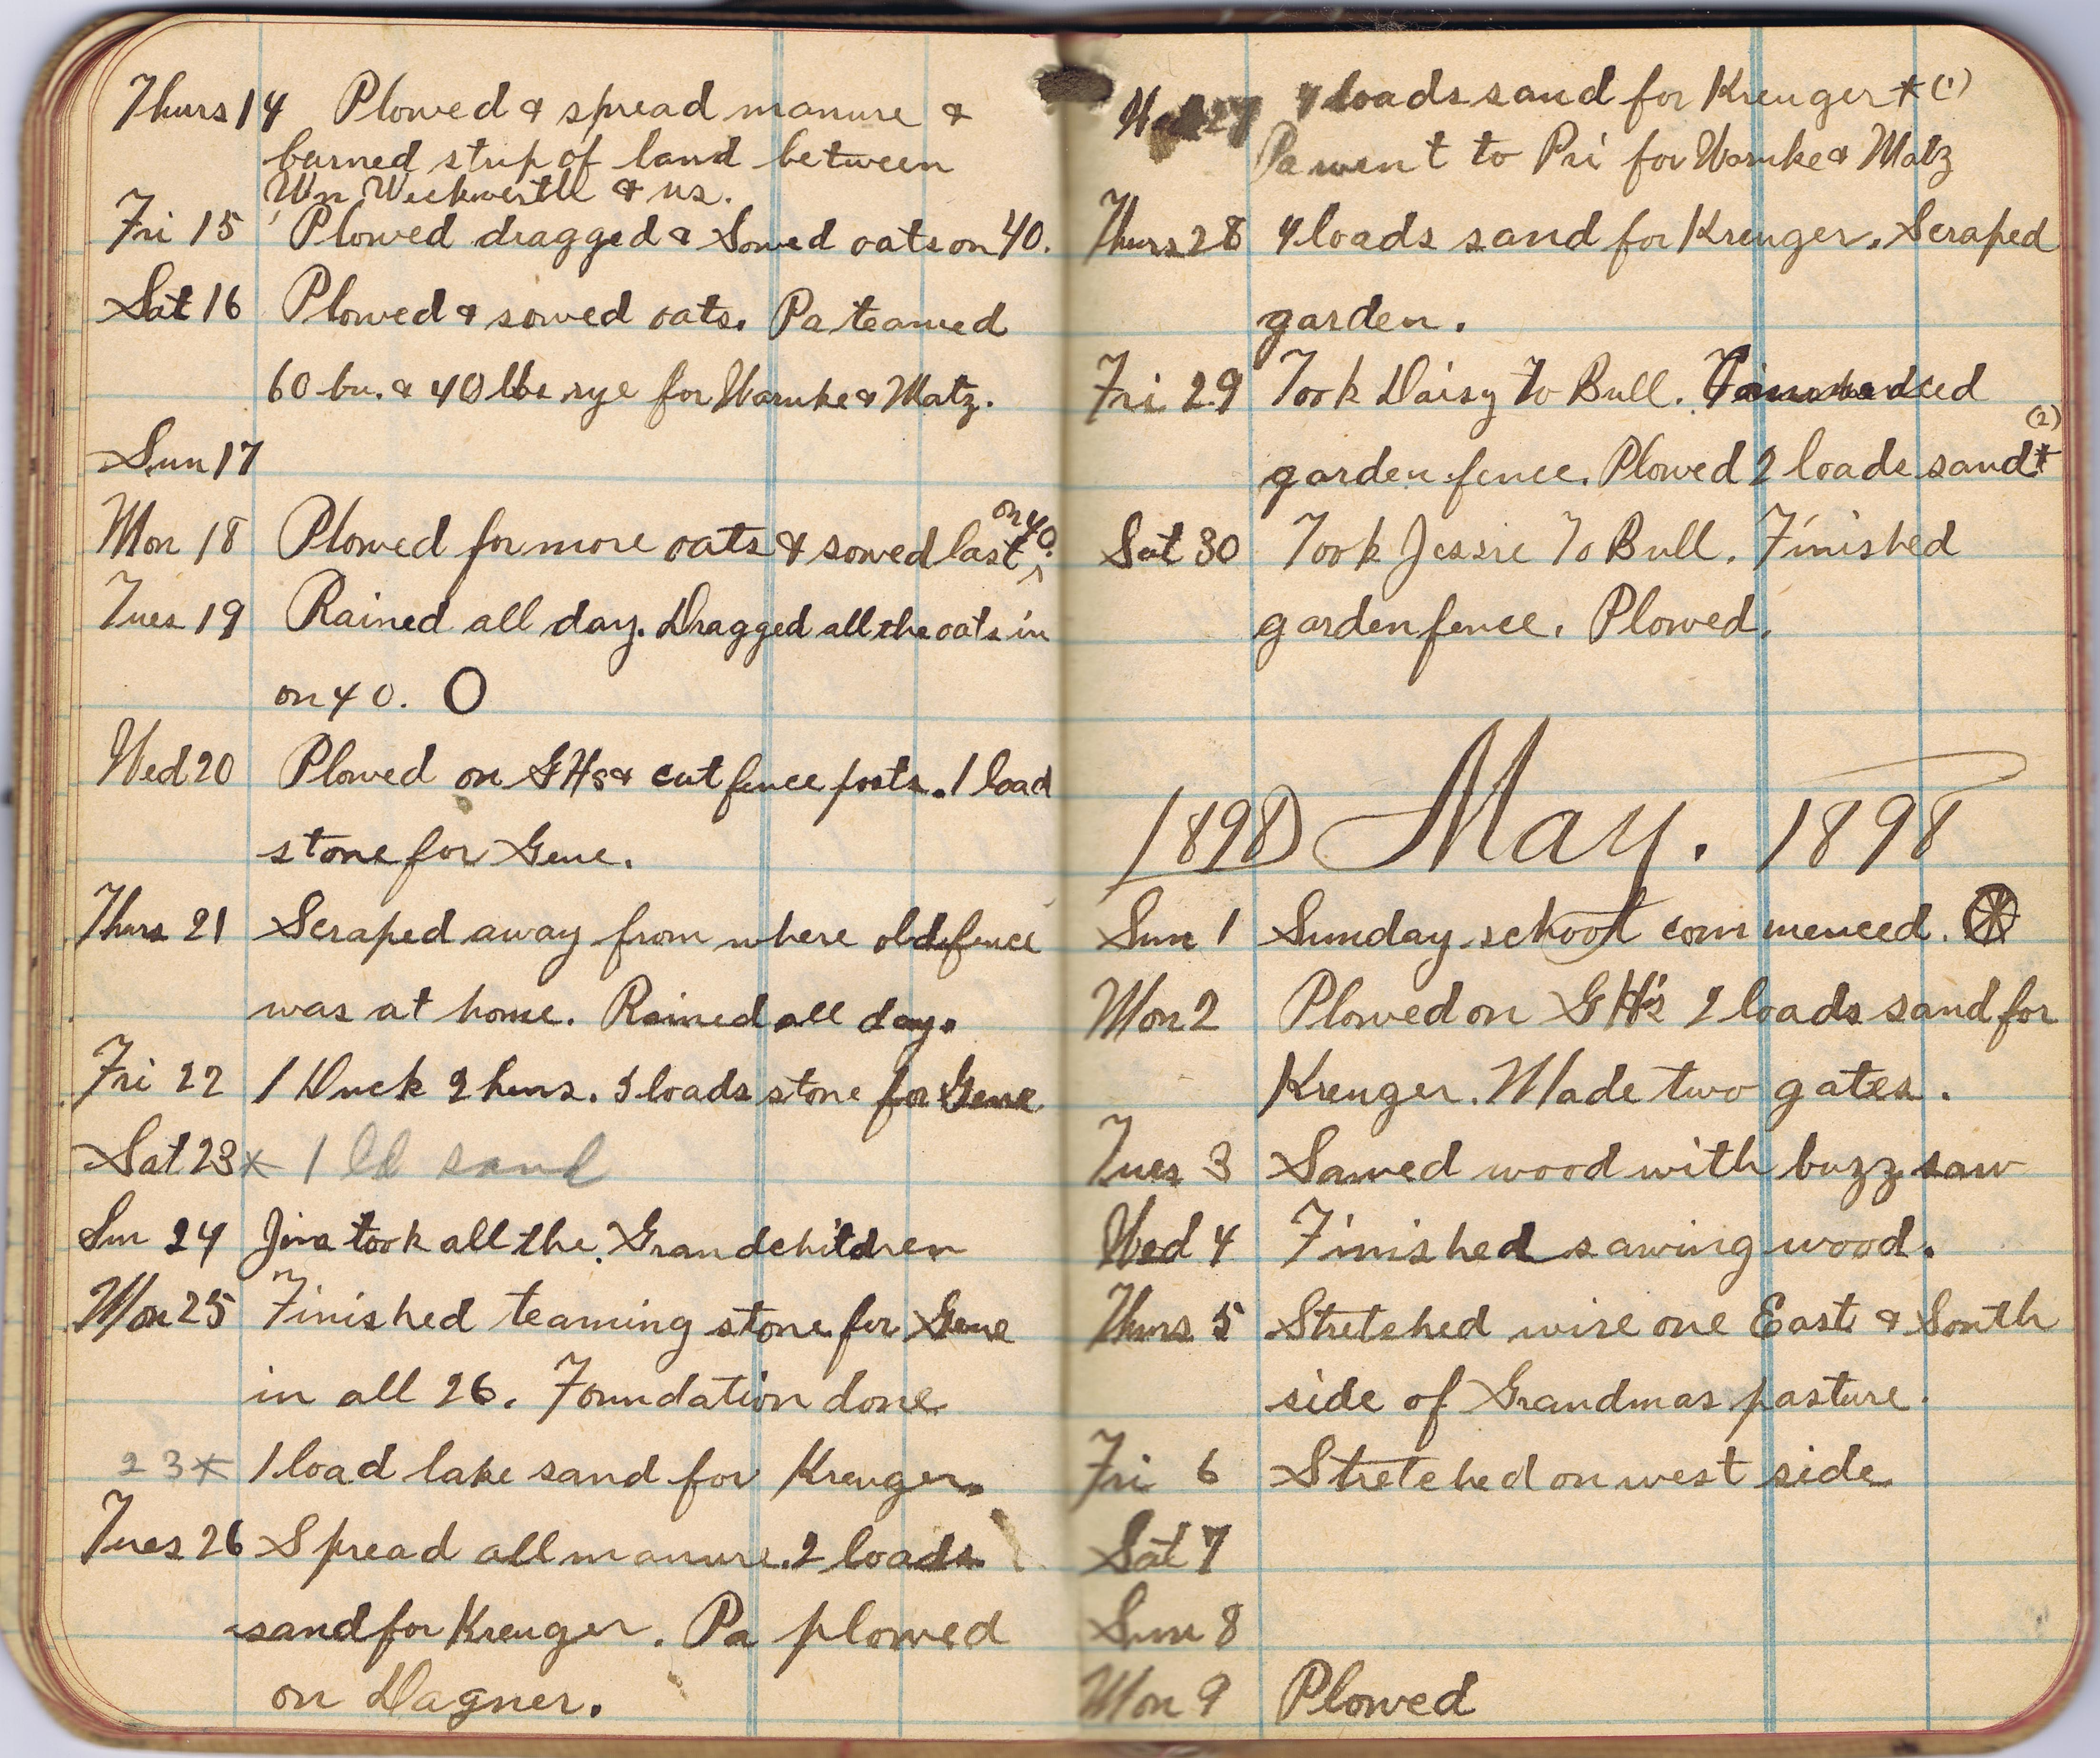 Thurs 14 Plowed & spread manure &
burned strip of land between
Wm Weckwerth & us.
Fri 15 Plowed dragged & Sowed oats on 40.
Sat 16 Plowed & sowed oats. Pa teamed
60 bu. & 40 lbs rye for Warnke & Matz.
Sun 17
on 40.
Mon 18 Plowed for more oats & sowed last
Tues 19 Rained all day. Dragged all the oats in
on 40. O
Wed 20 Plowed on GHs & cut fence posts. 1 load
stone for Gene.
Thurs 21 Scraped away from where old fence
was at home. Rained all day.
Fri 22 1 Duck 2 hens. 5 loads stone for Gene
Sat 23 * 1 ld sand
Sun 24 Jim took all the Grandchildren
Mon 25 Finished teaming stone for Gene
in all 26. Foundation done
23 * 1 load lake sand for Kreuger.
Tues 26 Spread all manure. 2 loads
sand for Kreuger. Pa plowed
on Wagner.
27 4 loads sand for Kreuger * (1)
Pa went to Pri for Warnke & Matz
Thurs 28 4 loads sand for Kreuger. Scraped
garden.
Fri 29 Took Daisy To Bull.
(2)
garden fence. Plowed 2 loads sand *
Sat 30 Took Jessie To Bull. Finished
garden fence. Plowed.
1898 May. 1898
Sun 1 Sunday school commenced.
Mon 2 Plowed on GH's 2 loads sand for
Kreuger. Made two gates.
Tues 3 Sawed wood with buzz saw
Wed 4 Finished sawing wood.
Thurs 5 Stretched wire one East & South
side of Grandmas pasture.
Fri 6 Stretched on west side
Sat 7
Sun 8
Mon 9 Plowed